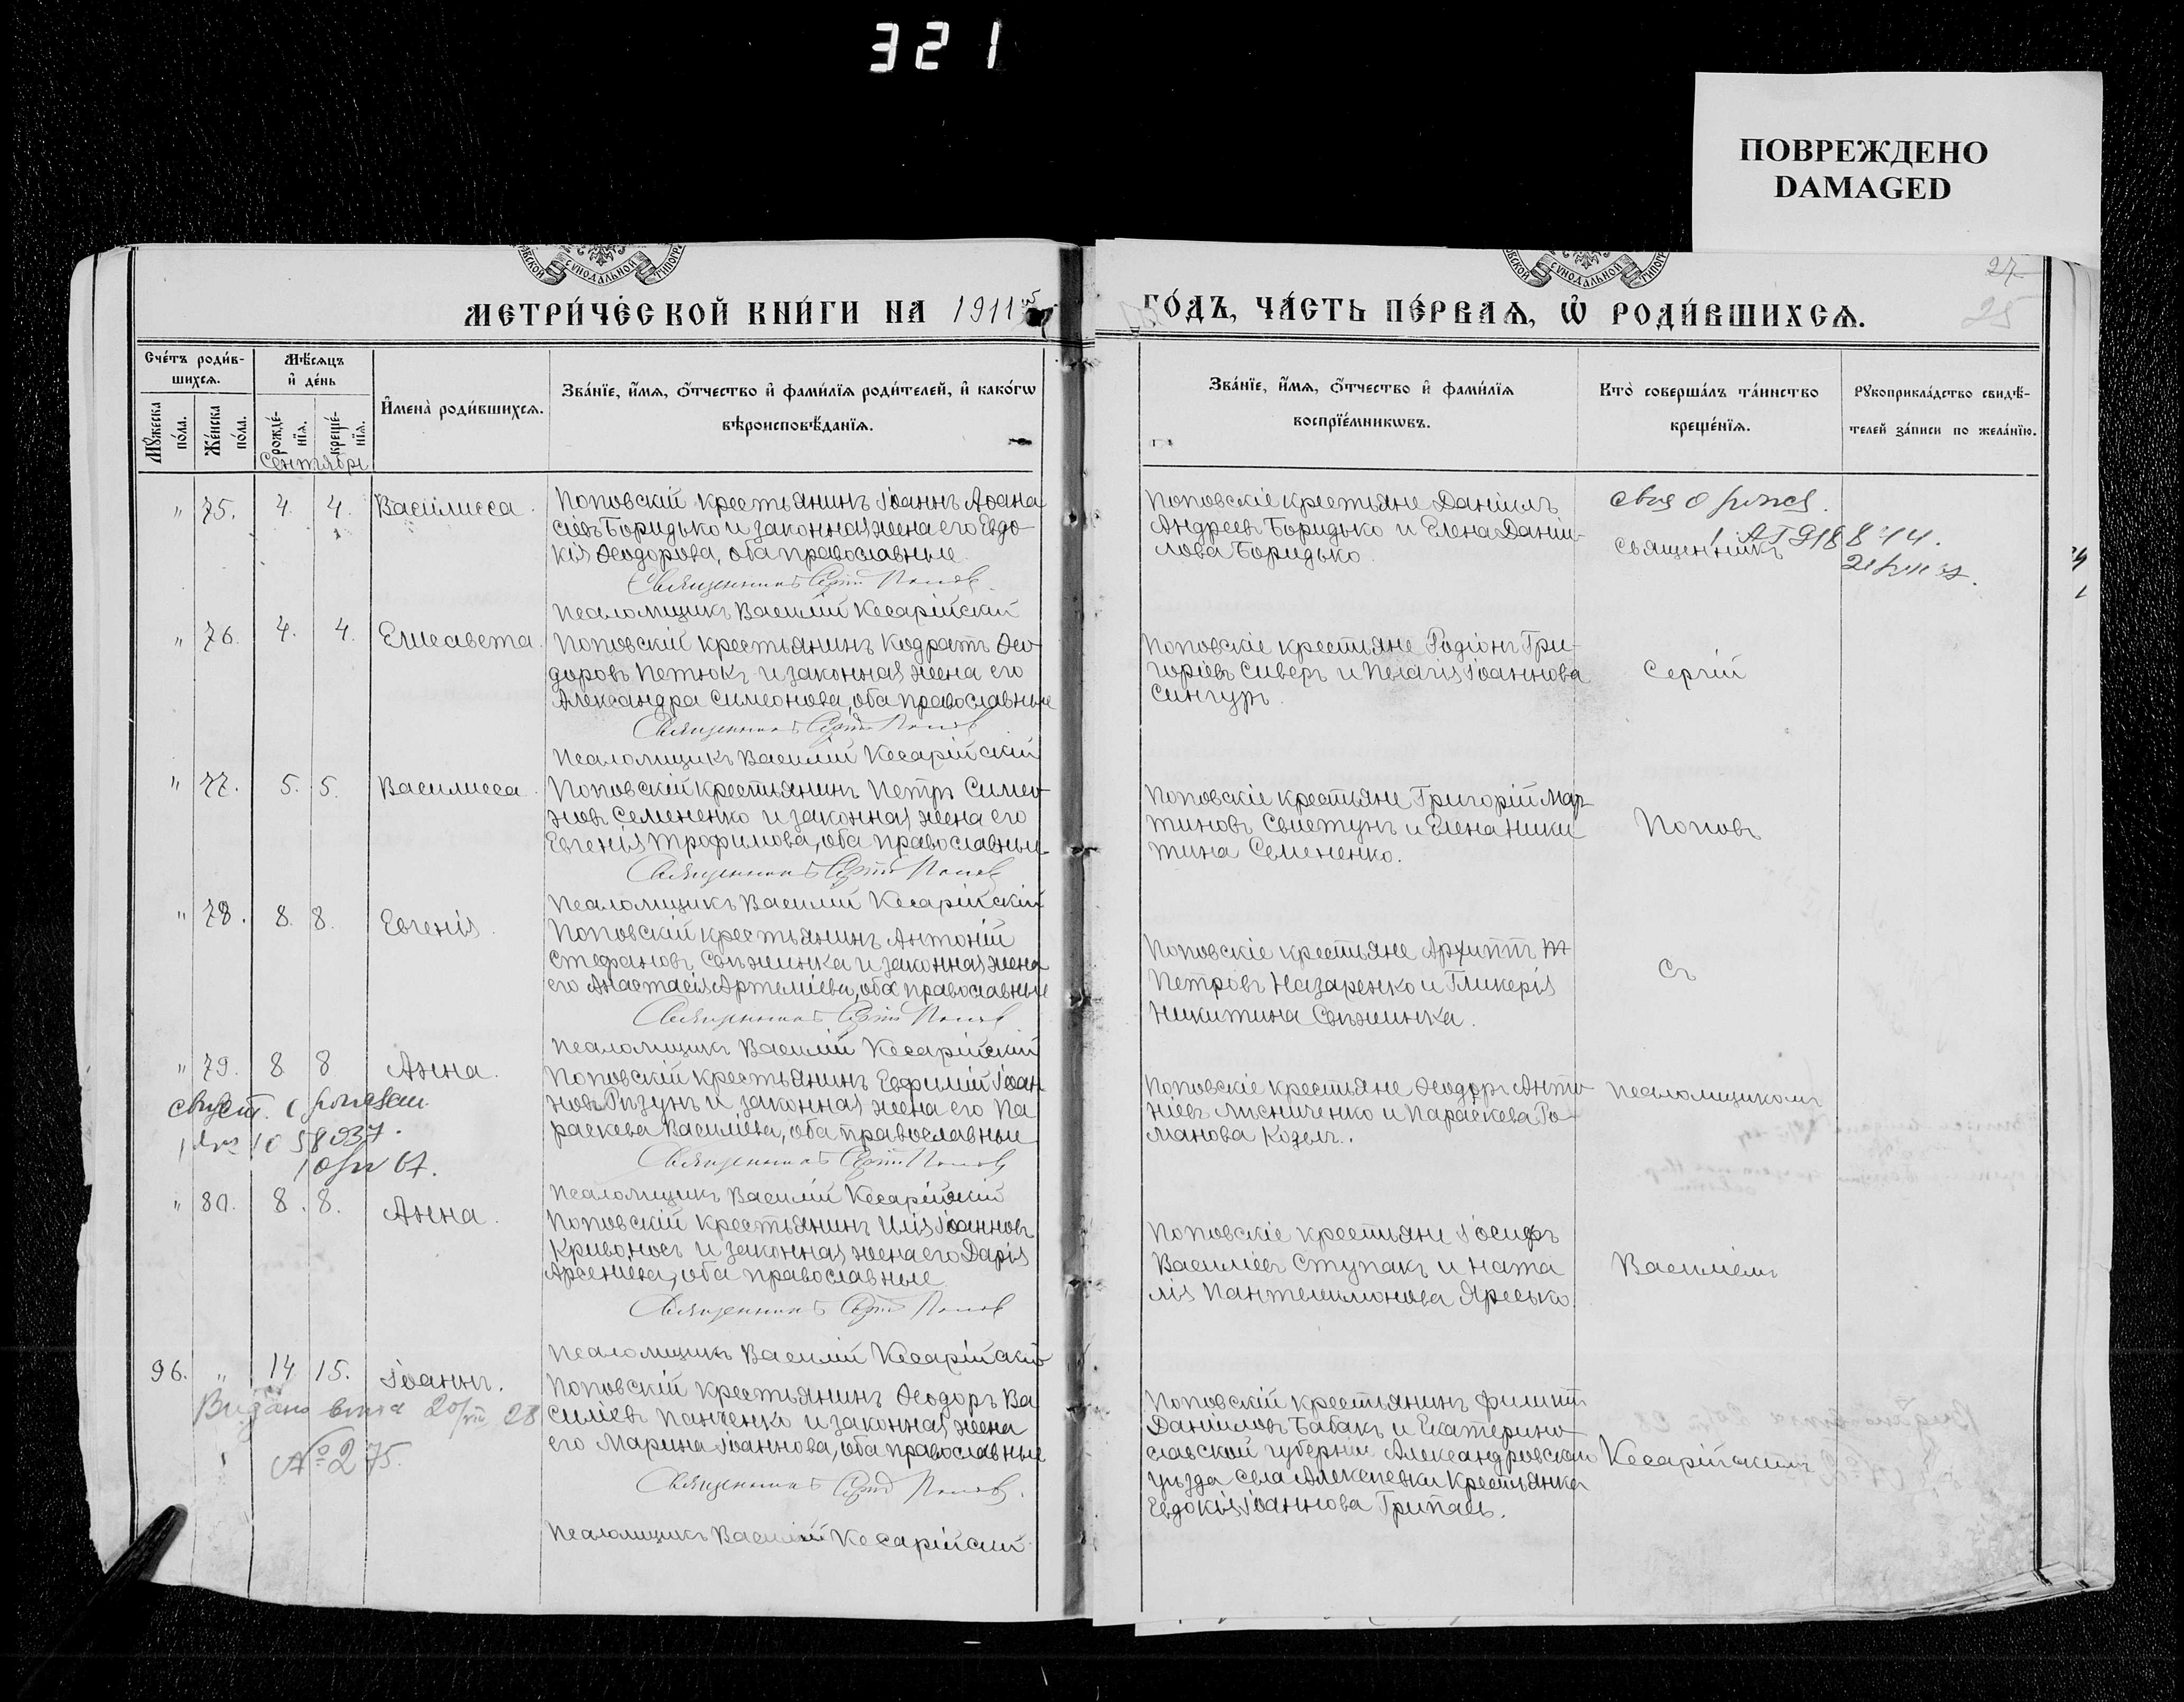 321
ПОВРЕЖДЕНО
DAMAGED
СѴНОДАЛЬНОЙ
СѴНОДАЛЬНОЙ
27
25
МЕТРИ́ЧЕСКОЙ КНИ́ГИ НА 1911й
ГО́ДЪ, ЧА́СТЬ ПЕ́РВАѦ, Ѡ҆ РОДИ́ВШИХСѦ.
Сче́тъ роди́в-
шихсѧ.
Мѣ́сѧцъ
и҆ де́нь
И҆мена̀ роди́вшихсѧ.
Зва́нїе, и҆́мѧ, ѻ҆́тчество и҆ фами́лїѧ роди́телей, и҆ како́гѡ
вѣроисповѣ́данїѧ.
Мꙋ́жеска
по́ла.
Же́нска
по́ла.
рожде́-
нїѧ.
креще́-
нїѧ.
Сентябрь
Зва́нїе, и҆́мѧ, ѻ҆́тчество и҆ фами́лїѧ
воспрїе́мникѡвъ.
Кто̀ соверша́лъ та́инство
креще́нїѧ.
Рꙋкоприкла́дство свидѣ́-
телей за́писи по жела́нїю.
" 75. 4. 4. Василисса.
Поповскій крестьянинъ Іоаннъ Аѳана
сіевъ Боридько и законная жена его Евдо-
кія Ѳеодорова, оба православные
Священникъ Сергій Поповъ
Псаломщикъ Василій Кесарійскій
Поповскіе крестьяне Даніилъ
Андреевъ Боридько и Елена Даніи-
лова Боридько.
Священникъ
" 76. 4. 4. Елисавета.
Поповскій крестьянинъ Кодратъ Ѳео-
доровъ Петюкъ и законная жена его
Александра Симеонова, оба православные
Священникъ Сергій Поповъ
Псаломщикъ Василій Кесарійскій
Поповскіе крестьяне Родіонъ Гри-
горіевъ Сиверъ и Пелагія Іоаннова
Сингуръ.
Сергій
" 77. 5. 5. Василисса.
Поповскій крестьянинъ Петръ Симео-
новъ Семененко и законная жена его
Евгенія Трофимова, оба православные
Священникъ Сергій Поповъ
Псаломщикъ Василій Кесарійскій
Поповскіе крестьяне Григорій Мар-
тиновъ Свистунъ и Елена Ники
тина Семененко.
Поповъ
" 78. 8. 8. Евгенія.
Поповскій крестьянинъ Антоній
Стефановъ и законная жена
его Анастасія Артеміева, оба православные
Священникъ Сергій Поповъ
Псаломщикъ Василій Кесарійскій
Поповскіе крестьяне Архиппъ
Петровъ Назаренко и Гликерія
Никитина
Съ
" 79. 8. 8 Анна.
Поповскій крестьянинъ Евфимій Іоан
новъ Ризунъ и законная жена его Па
раскева Василіева, оба православные
Священникъ Сергій Поповъ
Псаломщикъ Василій Кесарійскій
Поповскіе крестьяне Ѳеодоръ Анто-
ніевъ Лисниченко и Параскева Ро-
манова Козелъ.
Псаломщикомъ
" 80. 8. 8. Анна.
Поповскій крестьянинъ Илія Іоанновъ
Кривоносъ и законная жена его Дарія
Арсеніева, оба православные
Священникъ Сергій Поповъ
Псаломщикъ Василій Кесарійскій
Поповскіе крестьяне Іосифъ
Василіевъ Ступакъ и Ната
лія Пантелимонова Яресько
Василіемъ
96. " 14 15. Іоаннъ.
№ 275.
Поповскій крестьянинъ Ѳеодоръ Ва
силіевъ Панченко и законная жена
его Марина Іоаннова, оба православные
Священникъ Сергій Поповъ.
Псаломщикъ Василій Кесарійскій
Поповскій крестьянинъ Филиппъ
Даніиловъ Бабакъ и Екатерино-
славской губерніи Александровскаго
уѣзда села Алексѣевки крестьянка
Евдокія Іоаннова Грипась.
Кесарійскимъ